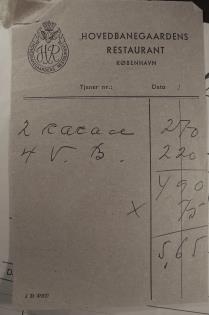 HOVEDBANEGAARDENS
RESTAURANT
KØBENHAVN
Tjener nr.: Dato /
2 cacao 270
4 V. B. 220
490
x 75
5,65